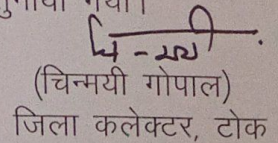 (चिन्मयी गोपाल)
जिला कलेक्टर, टोक